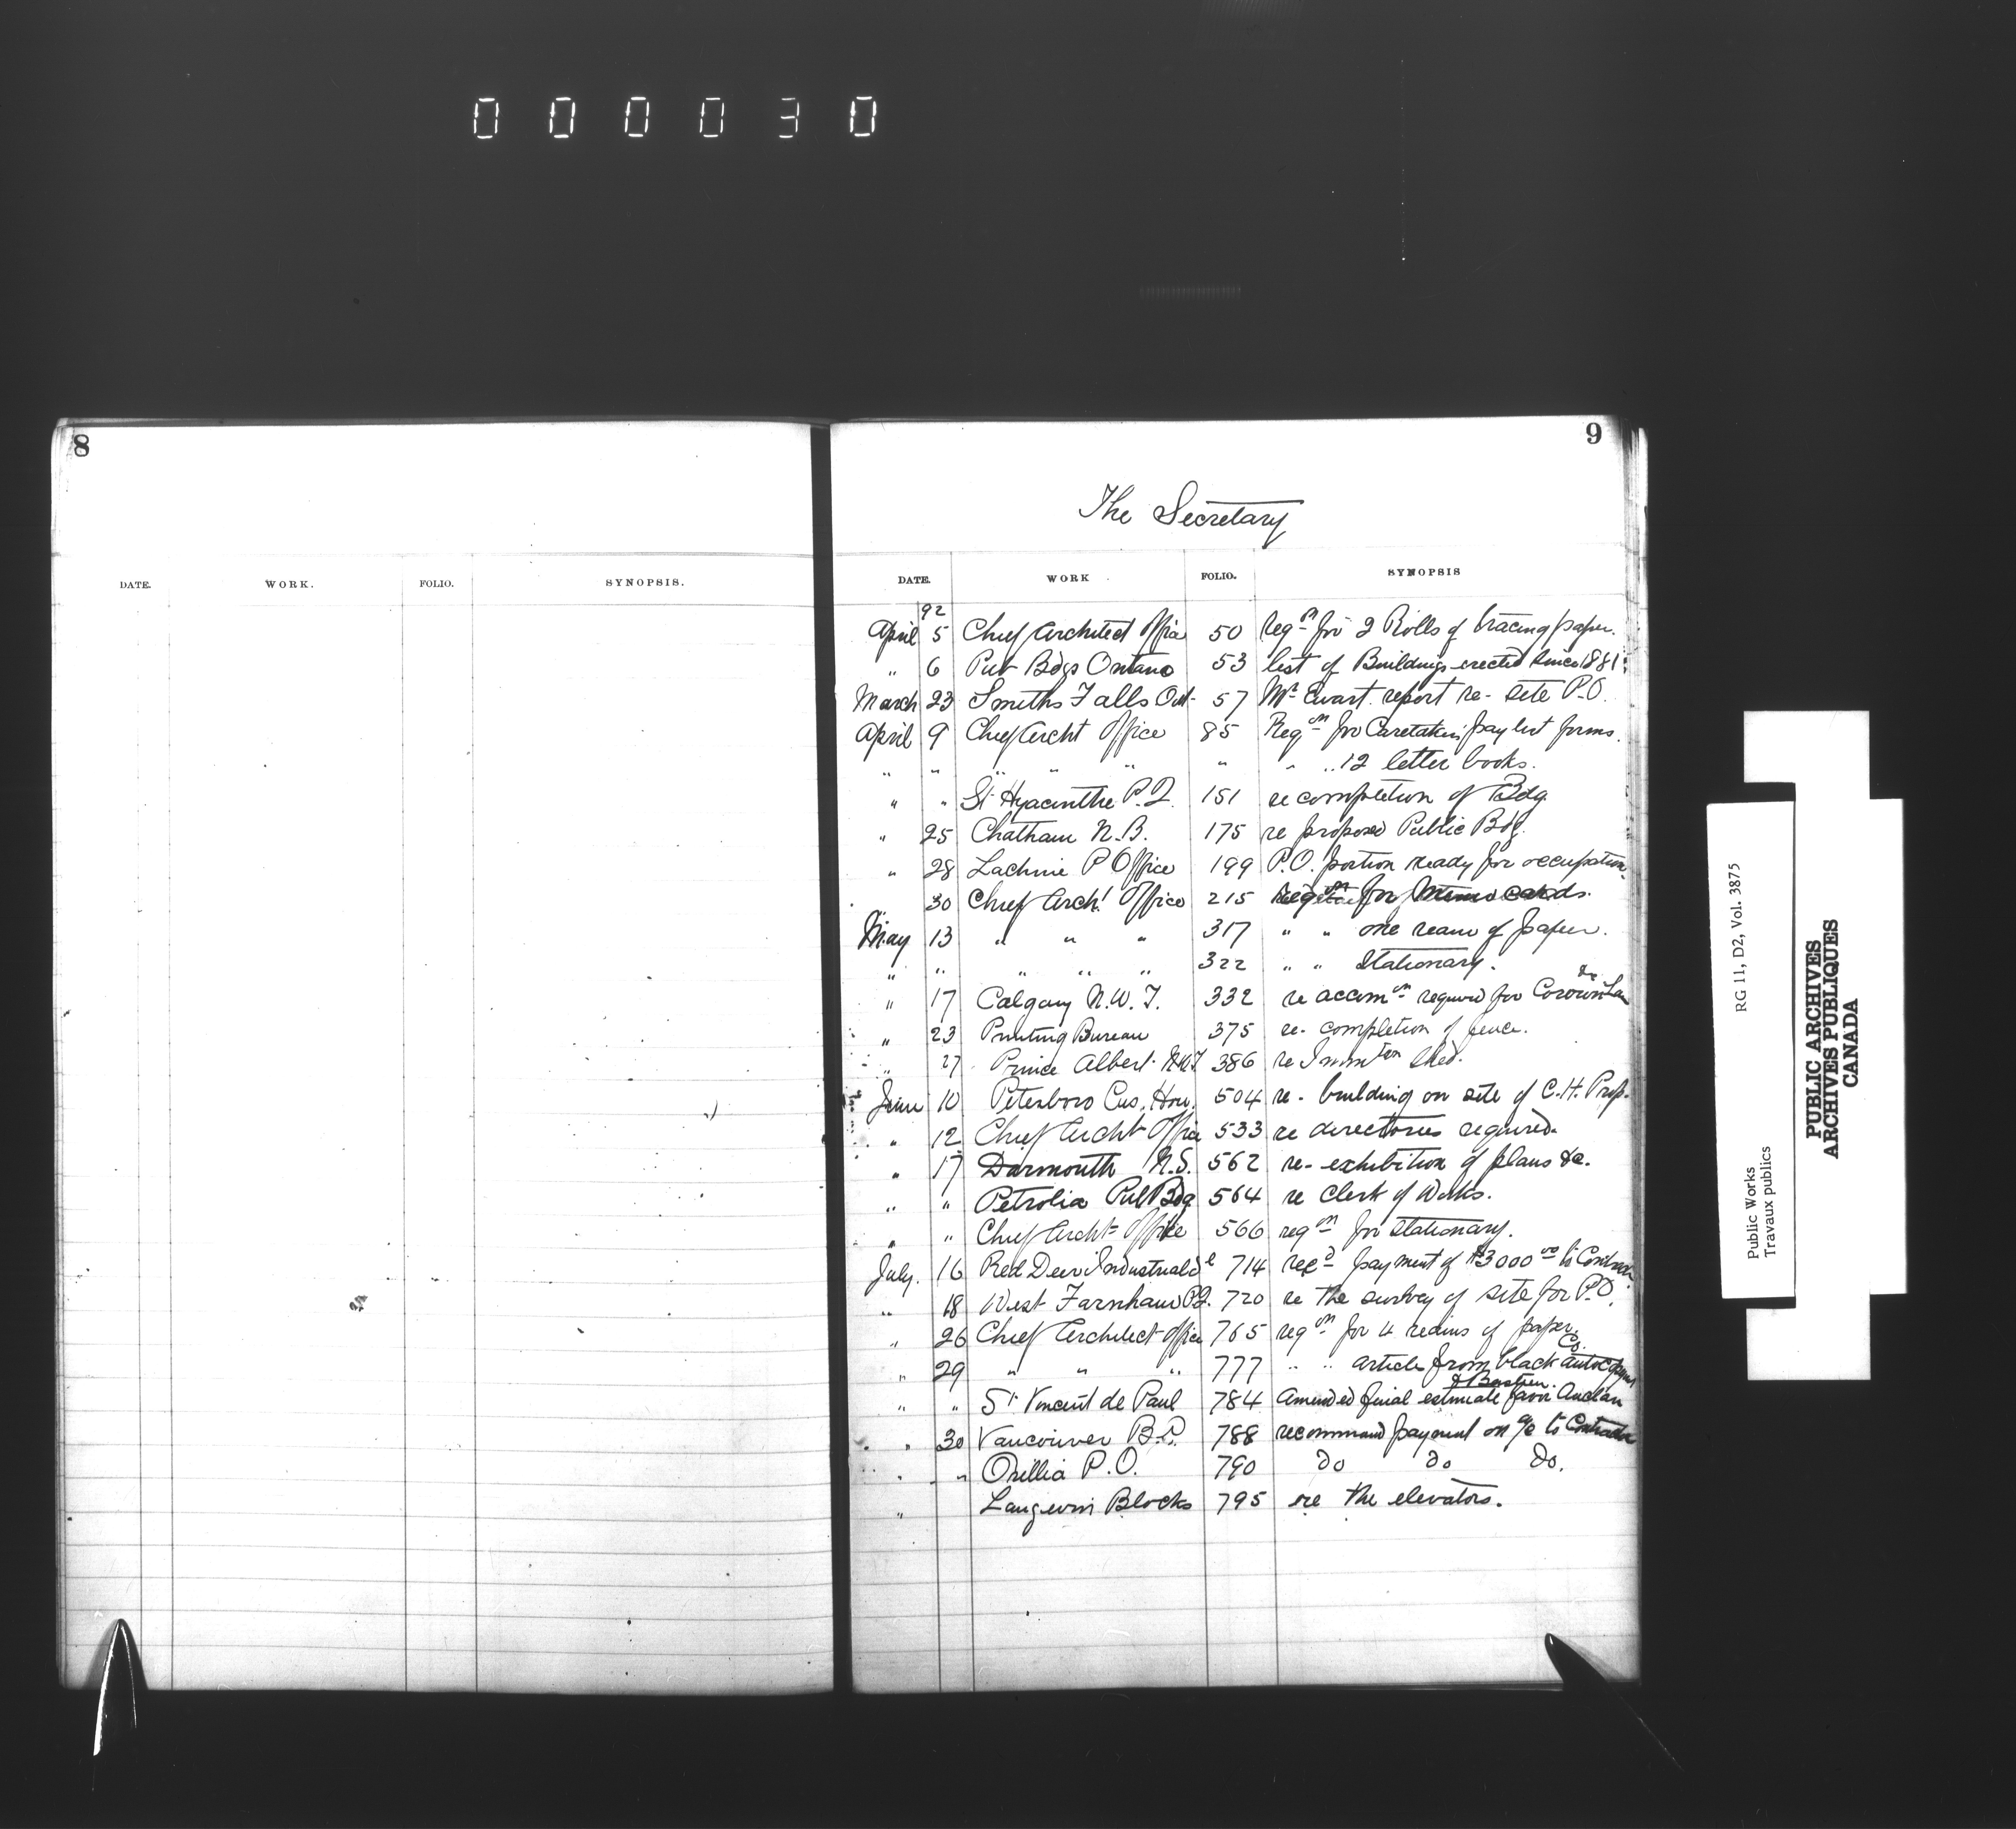 000030
8
DATE. WORK. FOLIO. SYNOPSIS.
9
The Secretary
DATE. WORK FOLIO. SYNOPSIS
92
April 5 Chief Architect Office 50 reqn for 2 Rolls of tracing paper.
" 6 Pub Bdgs Ontario 53 list of Buildings erected since 1881
March 23 Smiths Falls Ont 57 Mr Ewart report re- site P.O.
April 9 Chief Archt Office 85 Reqn for Caretakers pay list forms.
" " " " " " " " 12 letter books.
" " St Hyacinthe P.Q. 151 re completion of Bdg.
" 25 Chatham N.B. 175 re proposed Public Bdg.
" 28 Lachine P Office 199 P.O. portion ready for occupation.
" 30 Chief Archt Office 215 Reqn for Memo cards.
May 13 " " " 317 " " one ream of paper.
" " " " " 322 " " Stationary.
" 17 Calgary N.W.T. 332 re accomn required for Crown Lan
" 23 Printing Bureau 375 re- completion of fence.
" 27 Prince Albert N.W.T 386 re Immtion Shed.
June 10 Peterboro Cus. Hou. 504 re- building on site of C.H. Prop.
" 12 Chief Archt Office 533 re directories required.
" 17 Darmouth N.S. 562 re- exhibition of plans &c.
" " Petrolia Pub Bdg 564 re Clerk of Works.
" " Chief Archt Office 566 reqn for Stationary.
July. 16 Red Deer Industrial 714 payment of $3000 00 to Contrac
" 18 West Farnham P.Q. 720 re the survey of site for P.O.
" 26 Chief Architect office 765 reqn for 4 reams of paper.
" 29 " " " 777 " " article from black Co.
" " St Vincent de Paul 784 Amended final estimate favor
" 30 Vancouver B.C. 788 recommend payment on a/c to Contractor
" " Orillia P.O. 790 do do do.
" Langevin Blocks 795 re the elevators.
Public Works
Travaux publics
RG 11, D2, Vol. 3875
PUBLIC ARCHIVES
ARCHIVES PUBLIQUES
CANADA